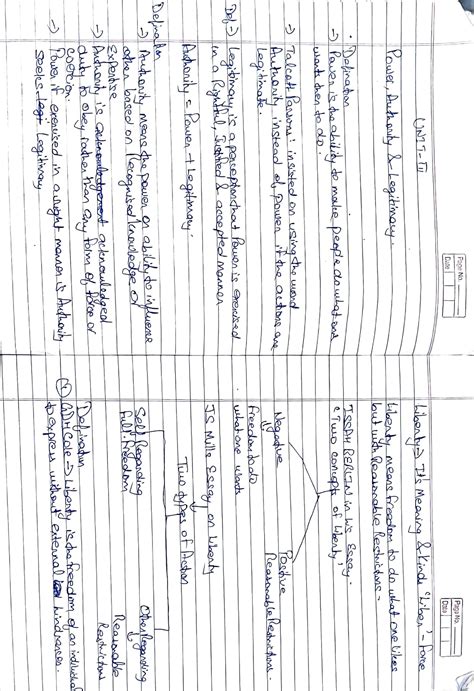 Page No.
Date
UNIT-III
Power, Authority & Legitimacy.
• Defination
→ Power is the ability to make people do what one
wants then to do.
→ Talcott Parsons: insisted on using the word
Authority instead of power if the actions are
legitimate.
Def → Legitimacy is a perception that Power is exercised
in a Rightful, Justified & accepted manner
Authority = Power + Legitimacy.
Defination
→ Authority means the power or ability to influence
other based on Recognised Knowledge or
Expertise
→ Authority is acknowledgement acknowledged
duty to obey rather than any form of force or
coercion.
→ Power if exercised in a right manner is Authority
seeks legi Legitimacy
Page No.
Date
Liberty → It's Meaning & Kinds 'Liber' = Free
Liberty means freedom to do what one likes
but with Reasonable Restrictions.
ISIAH BERLIN in his Essay.
"Two concepts of Liberty"
Negative
Positive
freedom to do
Reasonable Restrictions.
what one wants
JS Mills Essay on Liberty
Two types of Action
Self Regarding
Other Regarding
full freedom
Reasonable
Restriction
Defination
GDH Cole → Liberty is the freedom of an individual
to express without external hindrances.